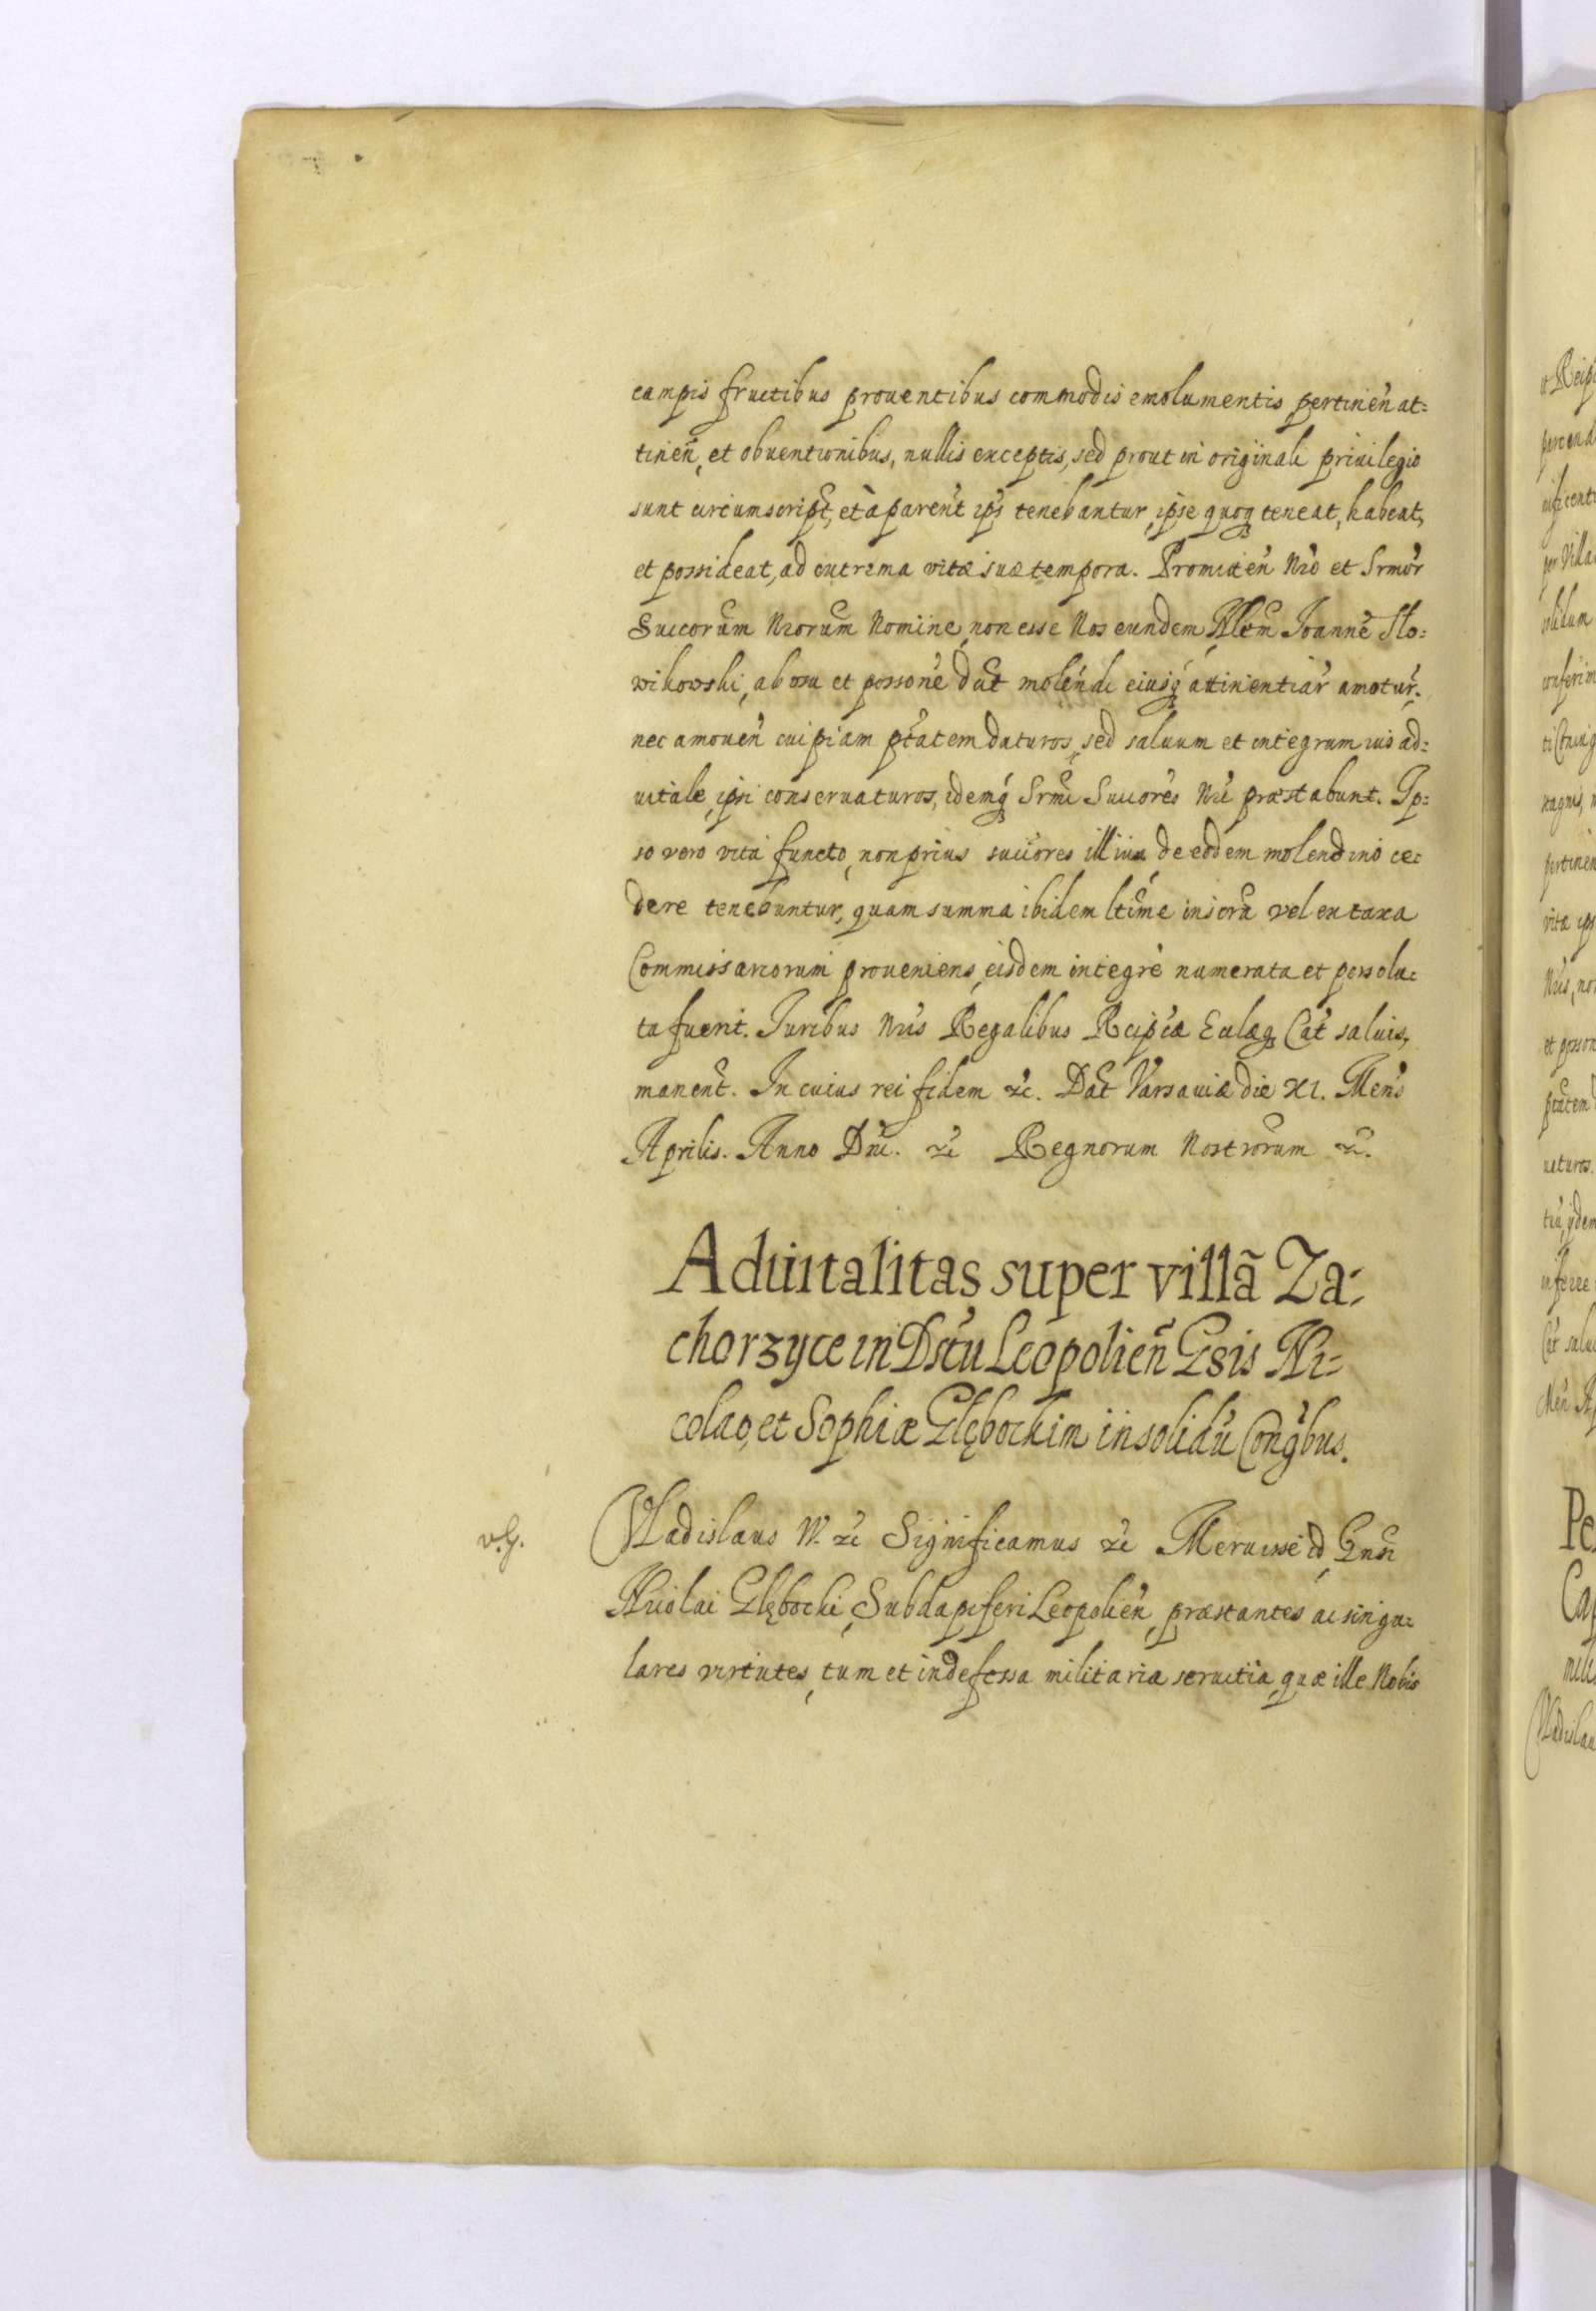 campis fructibus prouentibus commodis emolumentis pertinen̄ at=
tinen̄, et obuentionibus, nullis exceptis, sed prout in originali priuilegio
sunt circumscript, et à parent ips tenebantur, ipse quoq teneat, habeat,
et possideat, ad extrema vitæ suæ tempora. Promitten̄ Nro et Srmor
Succorum Nrorum Nomine, non esse Nos eundem Nlem Joannē Slo=
wikowski, ab usu et possone dict molendi eiusq attinentiar amotur.
nec amouen̄ cuipiam ptatem daturos, sed saluum et integrum ius ad=
uitale, ipsi conseruaturos, idemq Srmi Succores Nri præstabunt. Ip=
so vero vita functo, non prius succores illius de eodem molendino ce=
dere tenebuntur, quam summa ibidem ltime inscra vel ex taxa
Commissariorum proueniens, eisdem integrè numerata et persolu=
ta fuerit. Juribus Nris Regalibus Reipcæ Eclæq Cat saluis,
manent. In cuius rei fidem &c. Dat Varsauiæ die XI. Mens
Aprilis. Anno Dni. &c Regnorum Nostrorum &c.
Aduitalitas super villā Za=
chorzyce in Dstu Leopolien̄ Gsis Ni=
colao, et Sophiæ Głębockim in solidū Congbus.
v. g.
Vladislaus IV. &c Significamus &c Meruisse id Gnsi
Nicolai Głębocki, Subdapiferi Leopolien̄, præstantes ac singu=
lares virtutes, tum et indefessa militaria seruitia, quæ ille Nobis